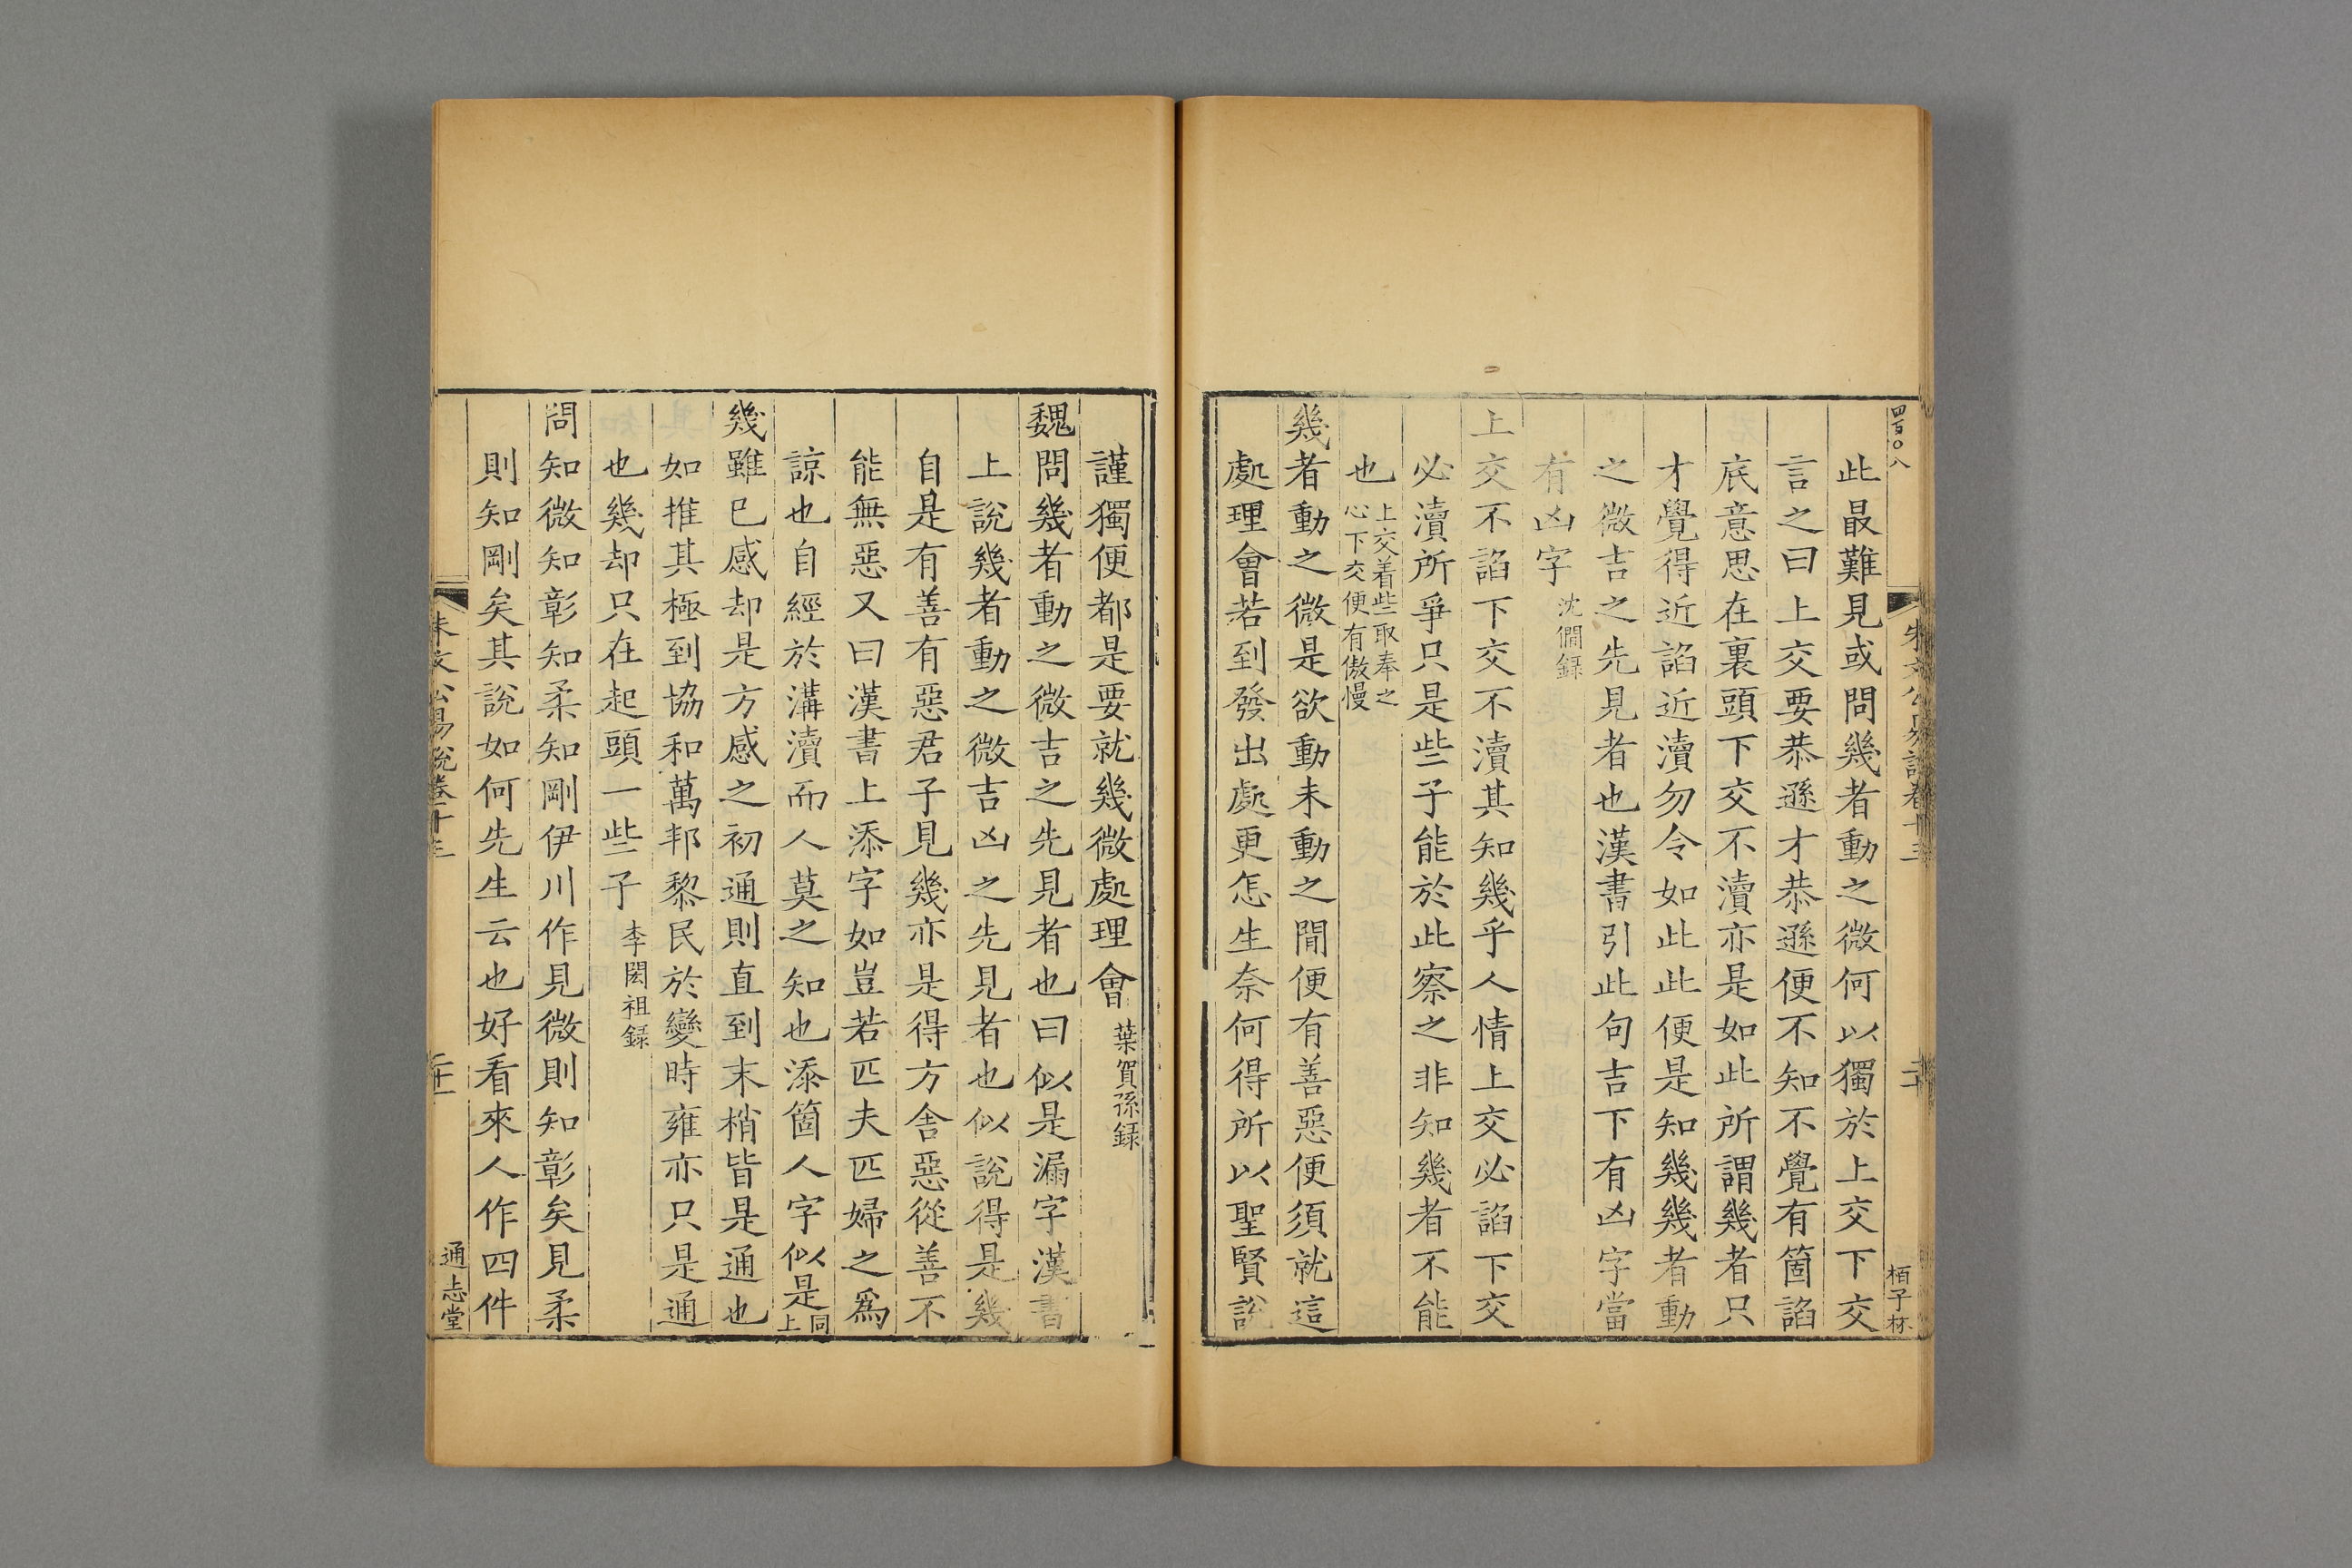 四百〇八
朱文公易說卷十三
二十
栢子林
此最難見或問幾者動之微何以獨於上交下交
言之曰上交要恭遜才恭遜便不知不覺有箇諂
底意思在裏頭下交不瀆亦是如此所謂幾者只
才覺得近諂近瀆勿令如此此便是知幾幾者動
之微吉之先見者也漢書引此句吉下有凶字當
有凶字沈僩録
上交不諂下交不瀆其知幾乎人情上交必諂下交
必瀆所爭只是些子能於此察之非知幾者不能
也上交着些取奉之
心下交便有傲慢
幾者動之微是欲動未動之間便有善惡便須就這
處理會若到發出處更怎生奈何得所以聖賢說
謹獨便都是要就幾微處理會葉賀孫録
魏問幾者動之微吉之先見者也曰似是漏字漢書
上說幾者動之微吉凶之先見者也似說得是幾
自是有善有惡君子見幾亦是得方舍惡從善不
能無惡又曰漢書上添字如豈若匹夫匹婦之爲
諒也自經於溝瀆而人莫之知也添箇人字似是同
上
幾雖已感却是方感之初通則直到末梢皆是通也
如推其極到協和萬邦黎民於變時雍亦只是通
也幾却只在起頭一些子李閎祖録
問知微知彰知柔知剛伊川作見微則知彰矣見柔
則知剛矣其說如何先生云也好看來人作四件
朱文公易說卷十三
二十一
通志堂